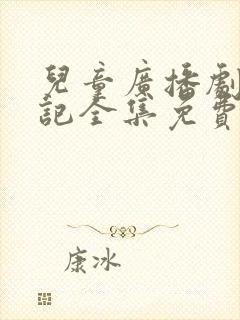 兒童廣播劇
記全集免費
康冰